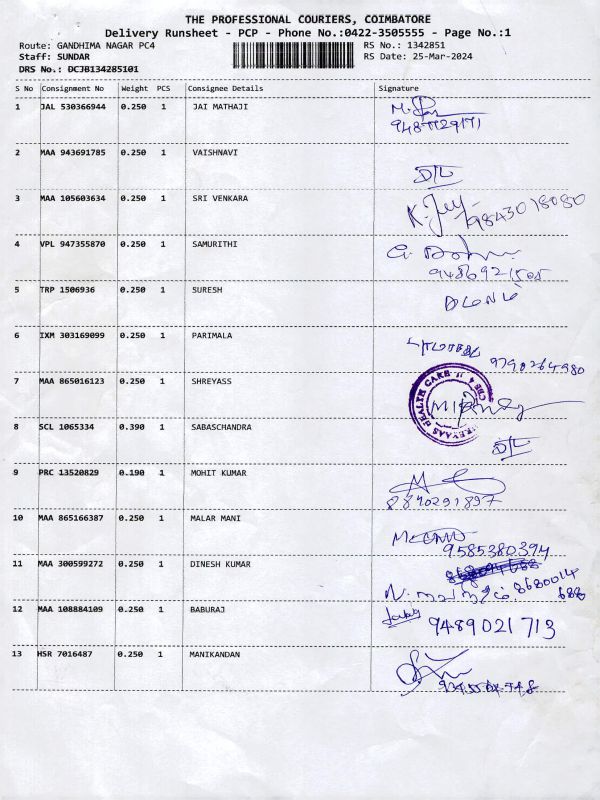 THE PROFESSIONAL COURIERS, COIMBATORE
Delivery Runsheet - PCP - Phone No.:0422-3505555 - Page No.:1
Route: GANDHIMA NAGAR PC4 RS No.: 1342851
Staff: SUNDAR RS Date: 25-Mar-2024
DRS No.: DCJB134285101
S No Consignment No Weight PCS Consignee Details Signature
1 JAL 530366944 0.250 1 JAI MATHAJI
2 MAA 943691785 0.250 1 VAISHNAVI D/L
3 MAA 105603634 0.250 1 SRI VENKARA K. Jey 9843018080
4 VPL 947355870 0.250 1 SAMURITHI
5 TRP 1506936 0.250 1 SURESH
6 IXM 303169099 0.250 1 PARIMALA 9790264980
7 MAA 865016123 0.250 1 SHREYASS
HEALTH CARE
8 SCL 1065334 0.390 1 SABASCHANDRA D/L
9 PRC 13520829 0.190 1 MOHIT KUMAR
8840291897
10 MAA 865166387 0.250 1 MALAR MANI
9585380394
11 MAA 300599272 0.250 1 DINESH KUMAR
8680014
688
12 MAA 108884109 0.250 1 BABURAJ 9489021713
13 HSR 7016487 0.250 1 MANIKANDAN